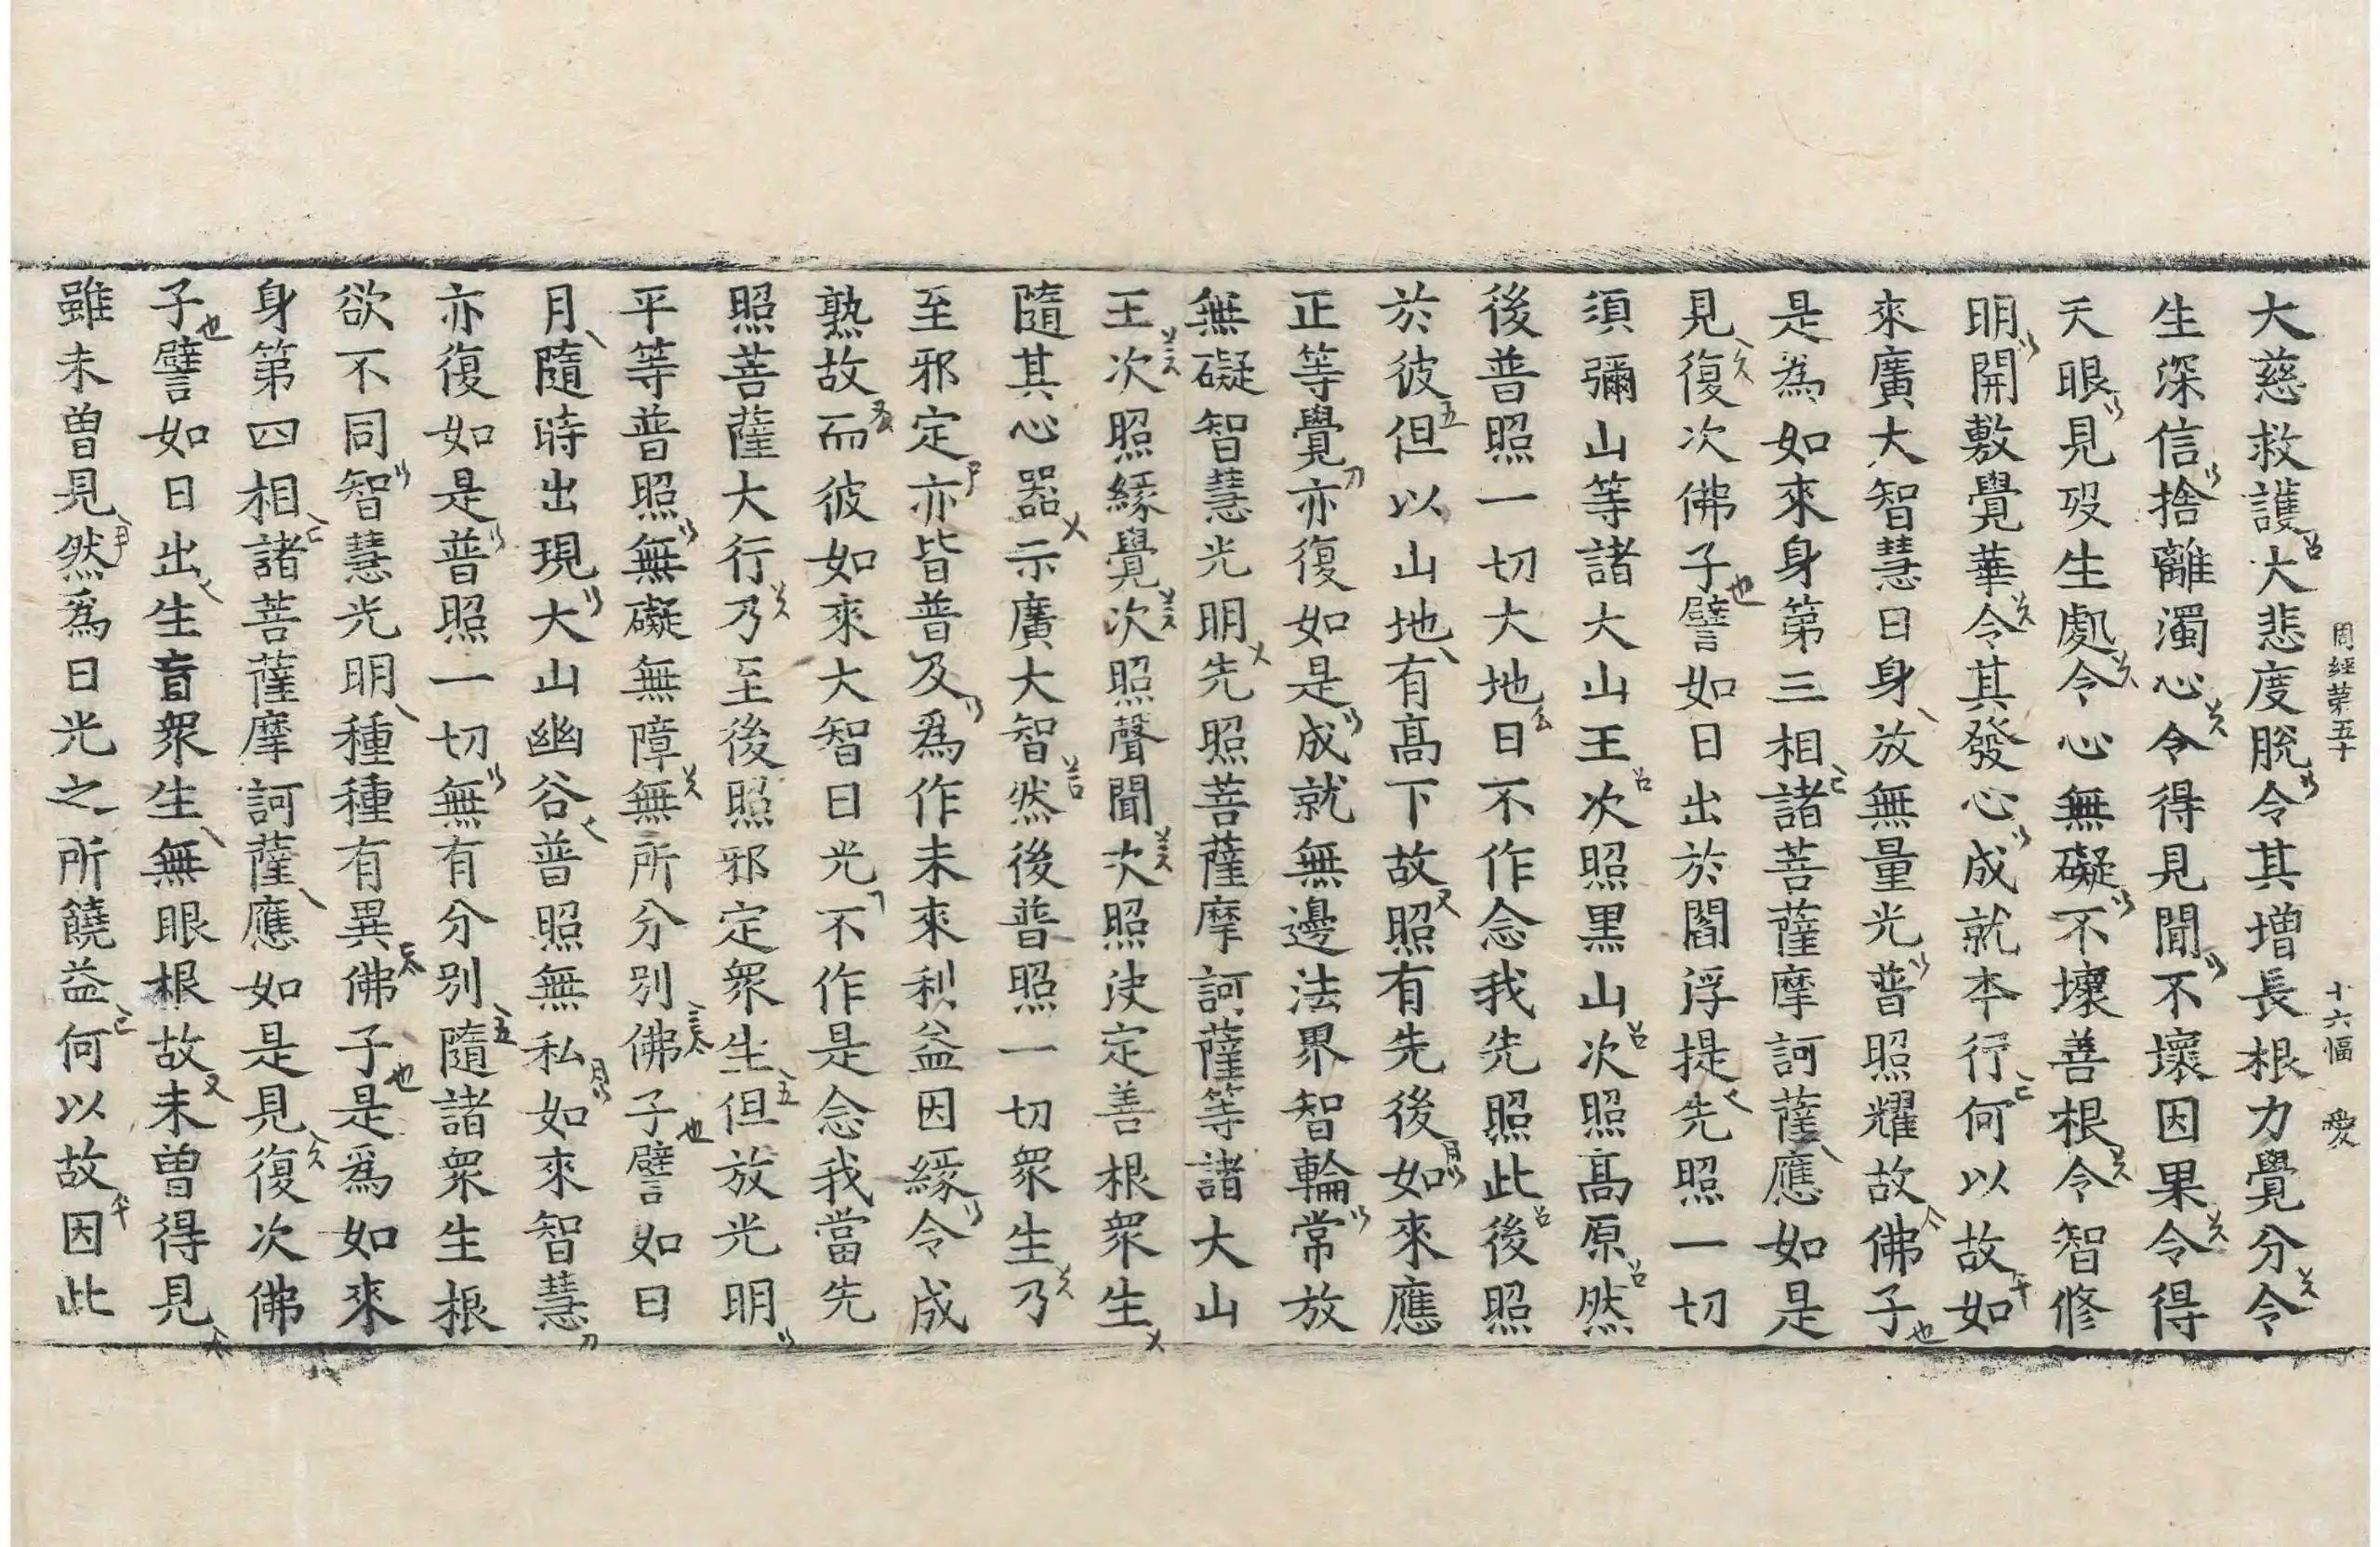 周經第五十 十六幅 愛
大慈救護大悲度脫令其增長根力覺分令
生深信捨離濁心令得見聞不壞因果令得
天眼見歿生處令心無礙不壞善根令智修
明開敷覺華令其發心成就本行何以故如
來廣大智慧日身放無量光普照耀故佛子
是爲如來身第三相諸菩薩摩訶薩應如是
見復次佛子譬如日出於閻浮提先照一切
須彌山等諸大山王次照黑山次照髙原然
後普照一切大地日不作念我先照此後照
於彼但以山地有髙下故照有先後如來應
正等覺亦復如是成就無邊法界智輪常放
無礙智慧光明先照菩薩摩訶薩等諸大山
王次照緣覺次照聲聞次照決定善根衆生
隨其心器示廣大智然後普照一切衆生乃
至邪定亦皆普及爲作未來利益因緣令成
熟故而彼如來大智日光不作是念我當先
照菩薩大行乃至後照邪定衆生但放光明
平等普照無礙無障無所分別佛子譬如日
月隨時出現大山幽谷普照無私如來智慧
亦復如是普照一切無有分別隨諸衆生根
欲不同智慧光明種種有異佛子是爲如來
身第四相諸菩薩摩訶薩應如是見復次佛
子譬如日出生盲衆生無眼根故未曾得見
雖未曾見然爲日光之所饒益何以故因此